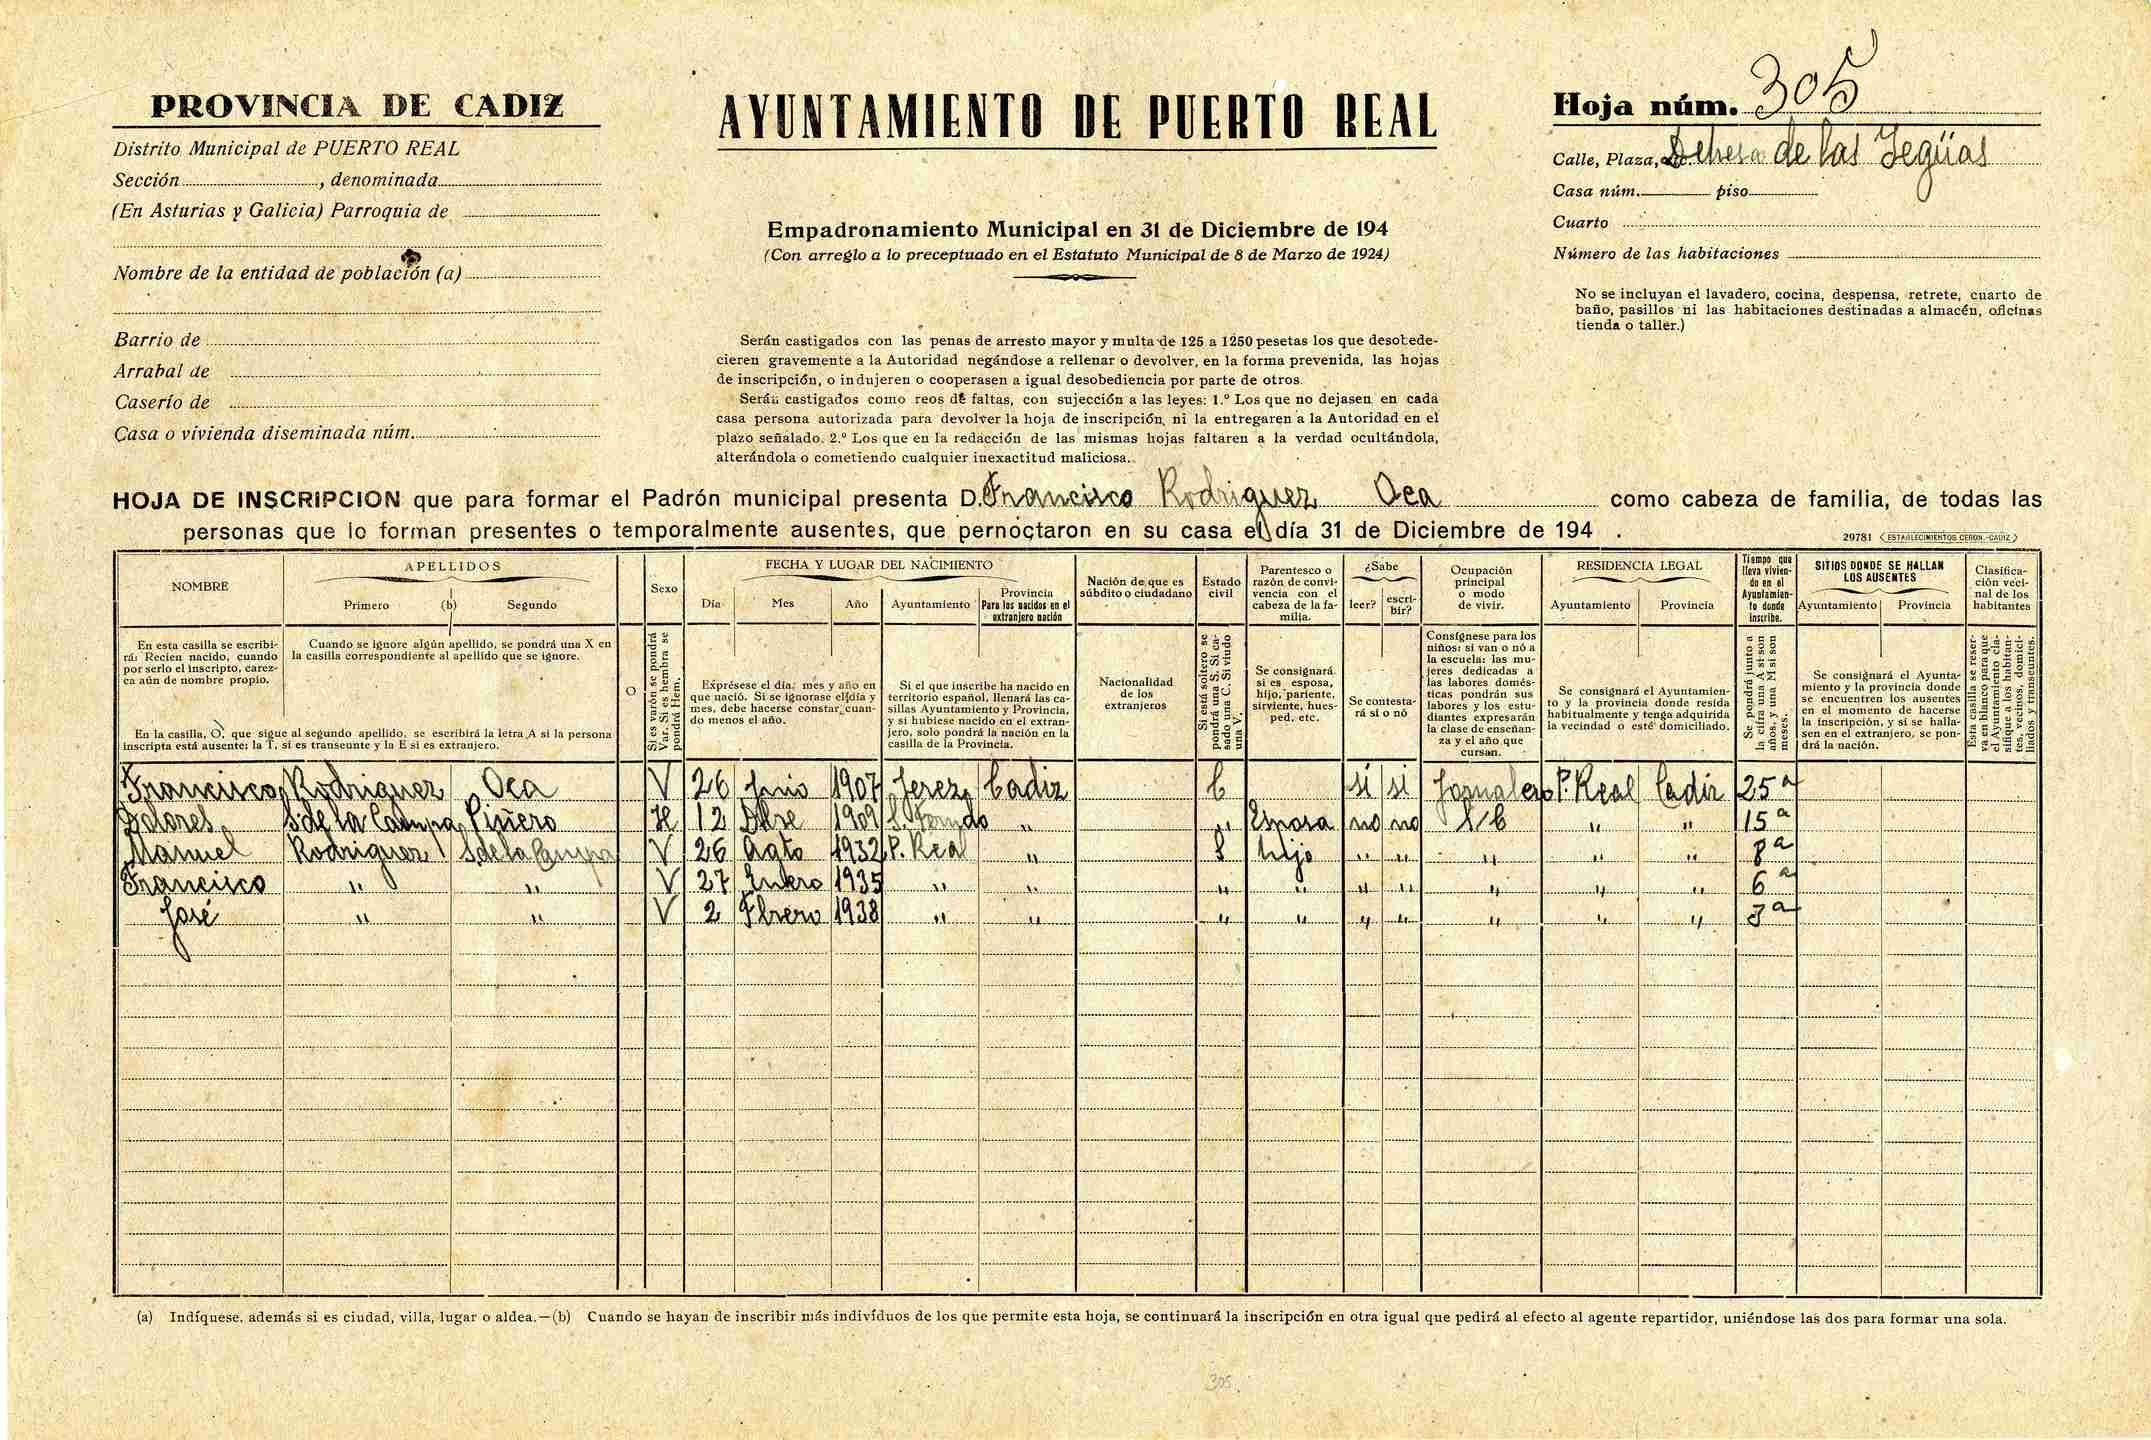 PROVINCIA DE CADIZ
Distrito Municipal de PUERTO REAL
Sección , denominada
(En Asturias y Galicia) Parroquia de
Nombre de la entidad de población (a)
Barrio de
Arrabal de
Caserío de
Casa o vivienda diseminada núm.
AYUNTAMIENTO DE PUERTO REAL
Empadronamiento Municipal en 31 de Diciembre de 194
(Con arreglo a lo preceptuado en el Estatuto Municipal de 8 de Marzo de 1924)
Serán castigados con las penas de arresto mayor y multa de 125 a 1250 pesetas los que desobede-
cieren gravemente a la Autoridad negándose a rellenar o devolver, en la forma prevenida, las hojas
de inscripción, o indujeren o cooperasen a igual desobediencia por parte de otros.
Serán castigados como reos de faltas, con sujección a las leyes: 1.º Los que no dejasen en cada
casa persona autorizada para devolver la hoja de inscripción, ni la entregaren a la Autoridad en el
plazo señalado. 2.º Los que en la redacción de las mismas hojas faltaren a la verdad ocultándola,
alterándola o cometiendo cualquier inexactitud maliciosa.
Hoja núm. 305
Calle, Plaza, etc. Dehesa de las Yegüas
Casa núm. piso
Cuarto
Número de las habitaciones
No se incluyan el lavadero, cocina, despensa, retrete, cuarto de
baño, pasillos ni las habitaciones destinadas a almacén, oficinas
tienda o taller.)
HOJA DE INSCRIPCION que para formar el Padrón municipal presenta D. Francisco Rodriguez Oca como cabeza de familia, de todas las
personas que lo forman presentes o temporalmente ausentes, que pernoctaron en su casa el día 31 de Diciembre de 194 .
29781 (ESTABLECIMIENTOS CERON.-CADIZ)
NOMBRE
En esta casilla se escribi-
rá: Recien nacido, cuando
por serlo el inscripto, carez-
ca aún de nombre propio.
APELLIDOS
Primero (b) Segundo
Cuando se ignore algún apellido, se pondrá una X en
la casilla correspondiente al apellido que se ignore.
En la casilla, O, que sigue al segundo apellido, se escribirá la letra A si la persona
inscripta está ausente: la T, si es transeunte y la E si es extranjero.
O
Sexo
Si es varón se pondrá
Var. Si es hembra se
pondrá Hem.
FECHA Y LUGAR DEL NACIMIENTO
Día Mes Año
Exprésese el día, mes y año en
que nació. Si se ignorase el día y
mes, debe hacerse constar cuan-
do menos el año.
Ayuntamiento
Provincia
Para los nacidos en el
extranjero nación
Si el que inscribe ha nacido en
territorio español, llenará las ca-
sillas Ayuntamiento y Provincia,
y si hubiese nacido en el extran-
jero, solo pondrá la nación en la
casilla de la Provincia.
Nación de que es
súbdito o ciudadano
Nacionalidad
de los
extranjeros
Estado
civil
Si está soltero se
pondrá una S. Si ca-
sado una C. Si viudo
una V.
Parentesco o
razón de convi-
vencia con el
cabeza de la fa-
milia.
Se consignará
si es esposa,
hijo, pariente,
sirviente, hues-
ped. etc.
¿Sabe
leer? escri-
bir?
Se contesta-
rá si o nó
Ocupación
principal
o modo
de vivir.
Consígnese para los
niños: si van o nó a
la escuela: las mu-
jeres dedicadas a
las labores domés-
ticas pondrán sus
labores y los estu-
diantes expresarán
la clase de enseñan-
za y el año que
cursan.
RESIDENCIA LEGAL
Ayuntamiento Provincia
Se consignará el Ayuntamien-
to y la provincia donde resida
habitualmente y tenga adquirida
la vecindad o esté domiciliado.
Tiempo que
lleva vivien-
do en el
Ayuntamien-
to donde
inscribe.
Se pondrá junto a
la cifra una A si son
años, y una M si son
meses.
SITIOS DONDE SE HALLAN
LOS AUSENTES
Ayuntamiento Provincia
Se consignará el Ayunta-
miento y la provincia donde
se encuentren los ausentes
en el momento de hacerse
la inscripción, y si se halla-
sen en el extranjero, se pon-
drá la nación.
Clasifica-
ción veci-
nal de los
habitantes
Esta casilla se reser-
va en blanco para que
el Ayuntamiento cla-
sifique a los habitan-
tes, vecinos, domici-
liados y transeuntes.
Francisco Rodriguez Oca V 26 Junio 1907 Jerez Cadiz C si si Jornalero P. Real Cadiz 25 a
Dolores S. de la Campa Piñero H 12 Dbre 1909 S. Ferndo " " Esposa no no S/C " " 15 a
Manuel Rodriguez S. de la Campa V 26 Agto 1932 P. Real " S hijo " " " " " 8 a
Francisco " " V 27 Enero 1935 " " " " " " " " " 6 a
José " " V 2 Fbrero 1938 " " " " " " " " " 3 a
(a) Indíquese, además si es ciudad, villa, lugar o aldea.—(b) Cuando se hayan de inscribir más indivíduos de los que permite esta hoja, se continuará la inscripción en otra igual que pedirá al efecto al agente repartidor, uniéndose las dos para formar una sola.
305